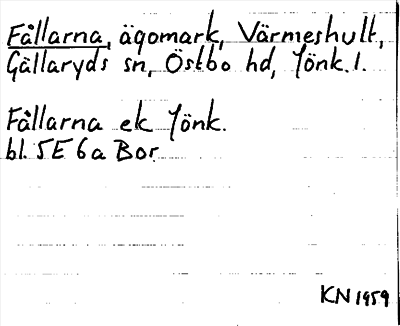 Fållarna, ägomark, Värmeshult,
Gällaryds sn, Östbo hd, Jönk. l.
Fållarna ek Jönk.
bl. 5E 6a Bor.
KN 1959